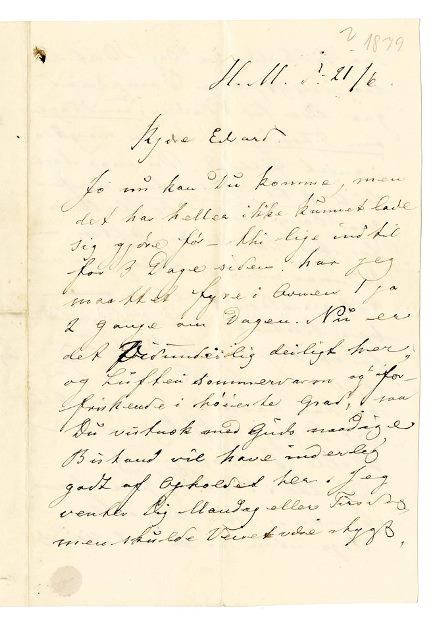 1879
H. M. d. 21/6.
Kjære Edvard.
Jo nu kan Du komme, men
det har heller ikke kunnet lade
sig gjøre før – thi lige indtil
for 3 Dage siden har jeg
maattet fyre i Ovnen 1 ja
2 gange om Dagen. Nu er
det vidunderlig deiligt her,
og Luften sommervarm og for-
friskende i høieste Grad, saa
Du vistnok med Guds naadige
Bistand vil have inderlig
godt af Opholdet her. Jeg
venter Dig Mandag eller Tirsdag
men skulde Veiret være stygt,